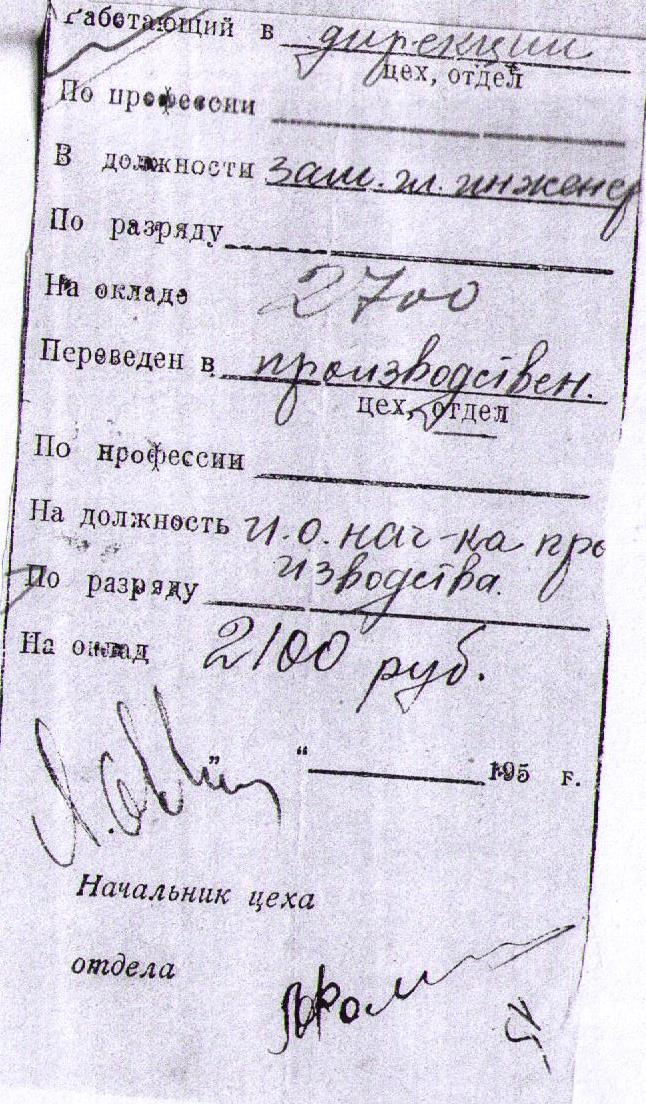 Работающий в дирекции
цех, отдел
По профессии
В должности зам. гл. инженер
По разряду
На окладе 2700
Переведен в производствен.
цех, отдел
По профессии
На должность и.о. нач-ка про
изводства.
По разряду
На оклад 2100 руб.
„ “ 195 г.
Начальник цеха
отдела